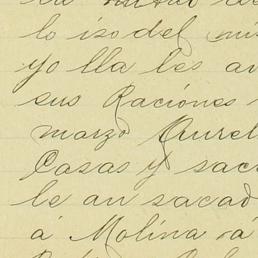 lo izo del mis
yo lla les an
sus Raciones
marzo Aurel
Casas y sac
le an sacad
á Molina á